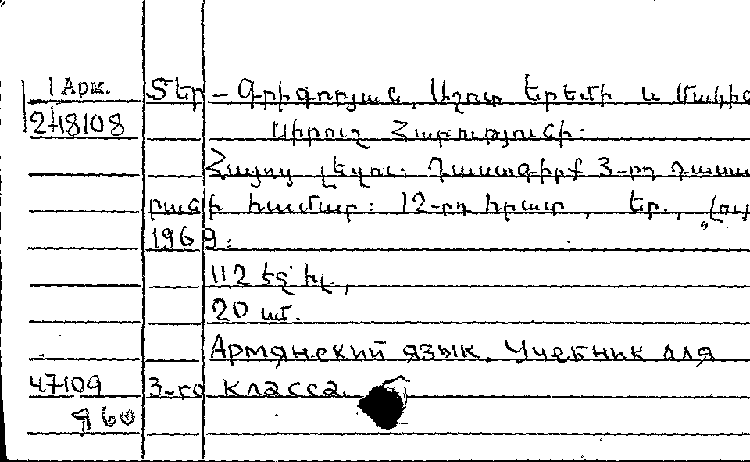 1 Арк. Տեր – Գրիգորյան, Աշոտ Երեմի և
248108 Սիրուշ Հարությունի:
Հայոց լեզու. Դասագիրք 3-րդ դասա
րանի համար: 12-րդ հրատ., Եր.,
1969:
112 էջ իլ.,
20 սմ.
Армянский язык. Учебник для
47109 3-го класса.
960